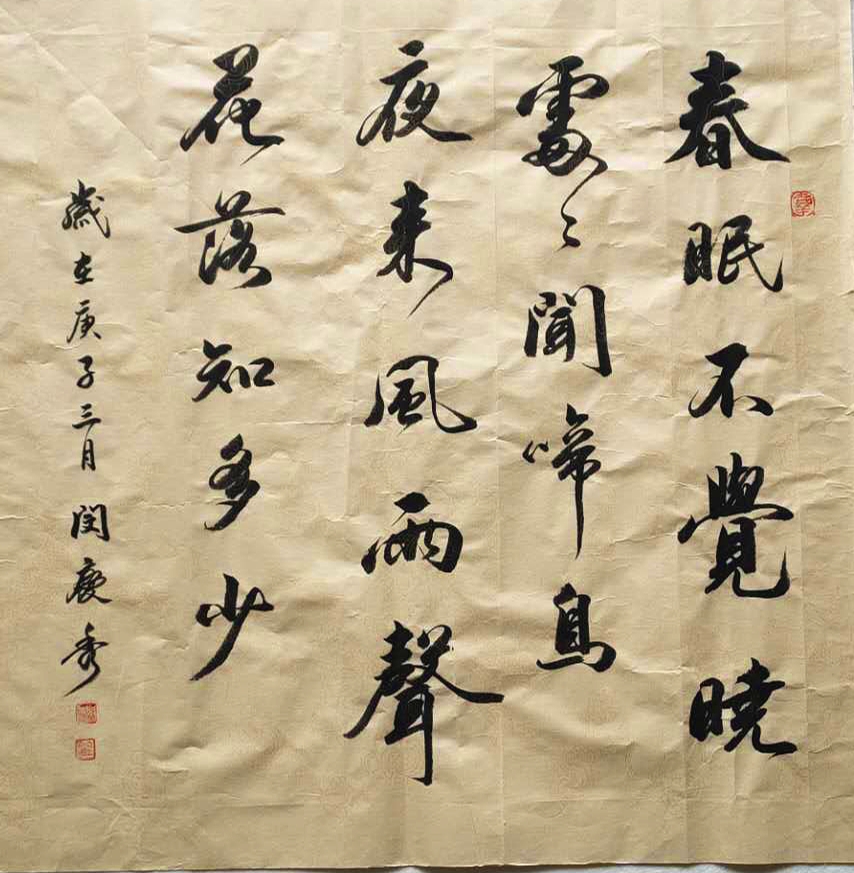 春眠不覺曉
處〻聞啼鳥
夜来風雨聲
花落知多少
歲在庚子三月閏慶秀